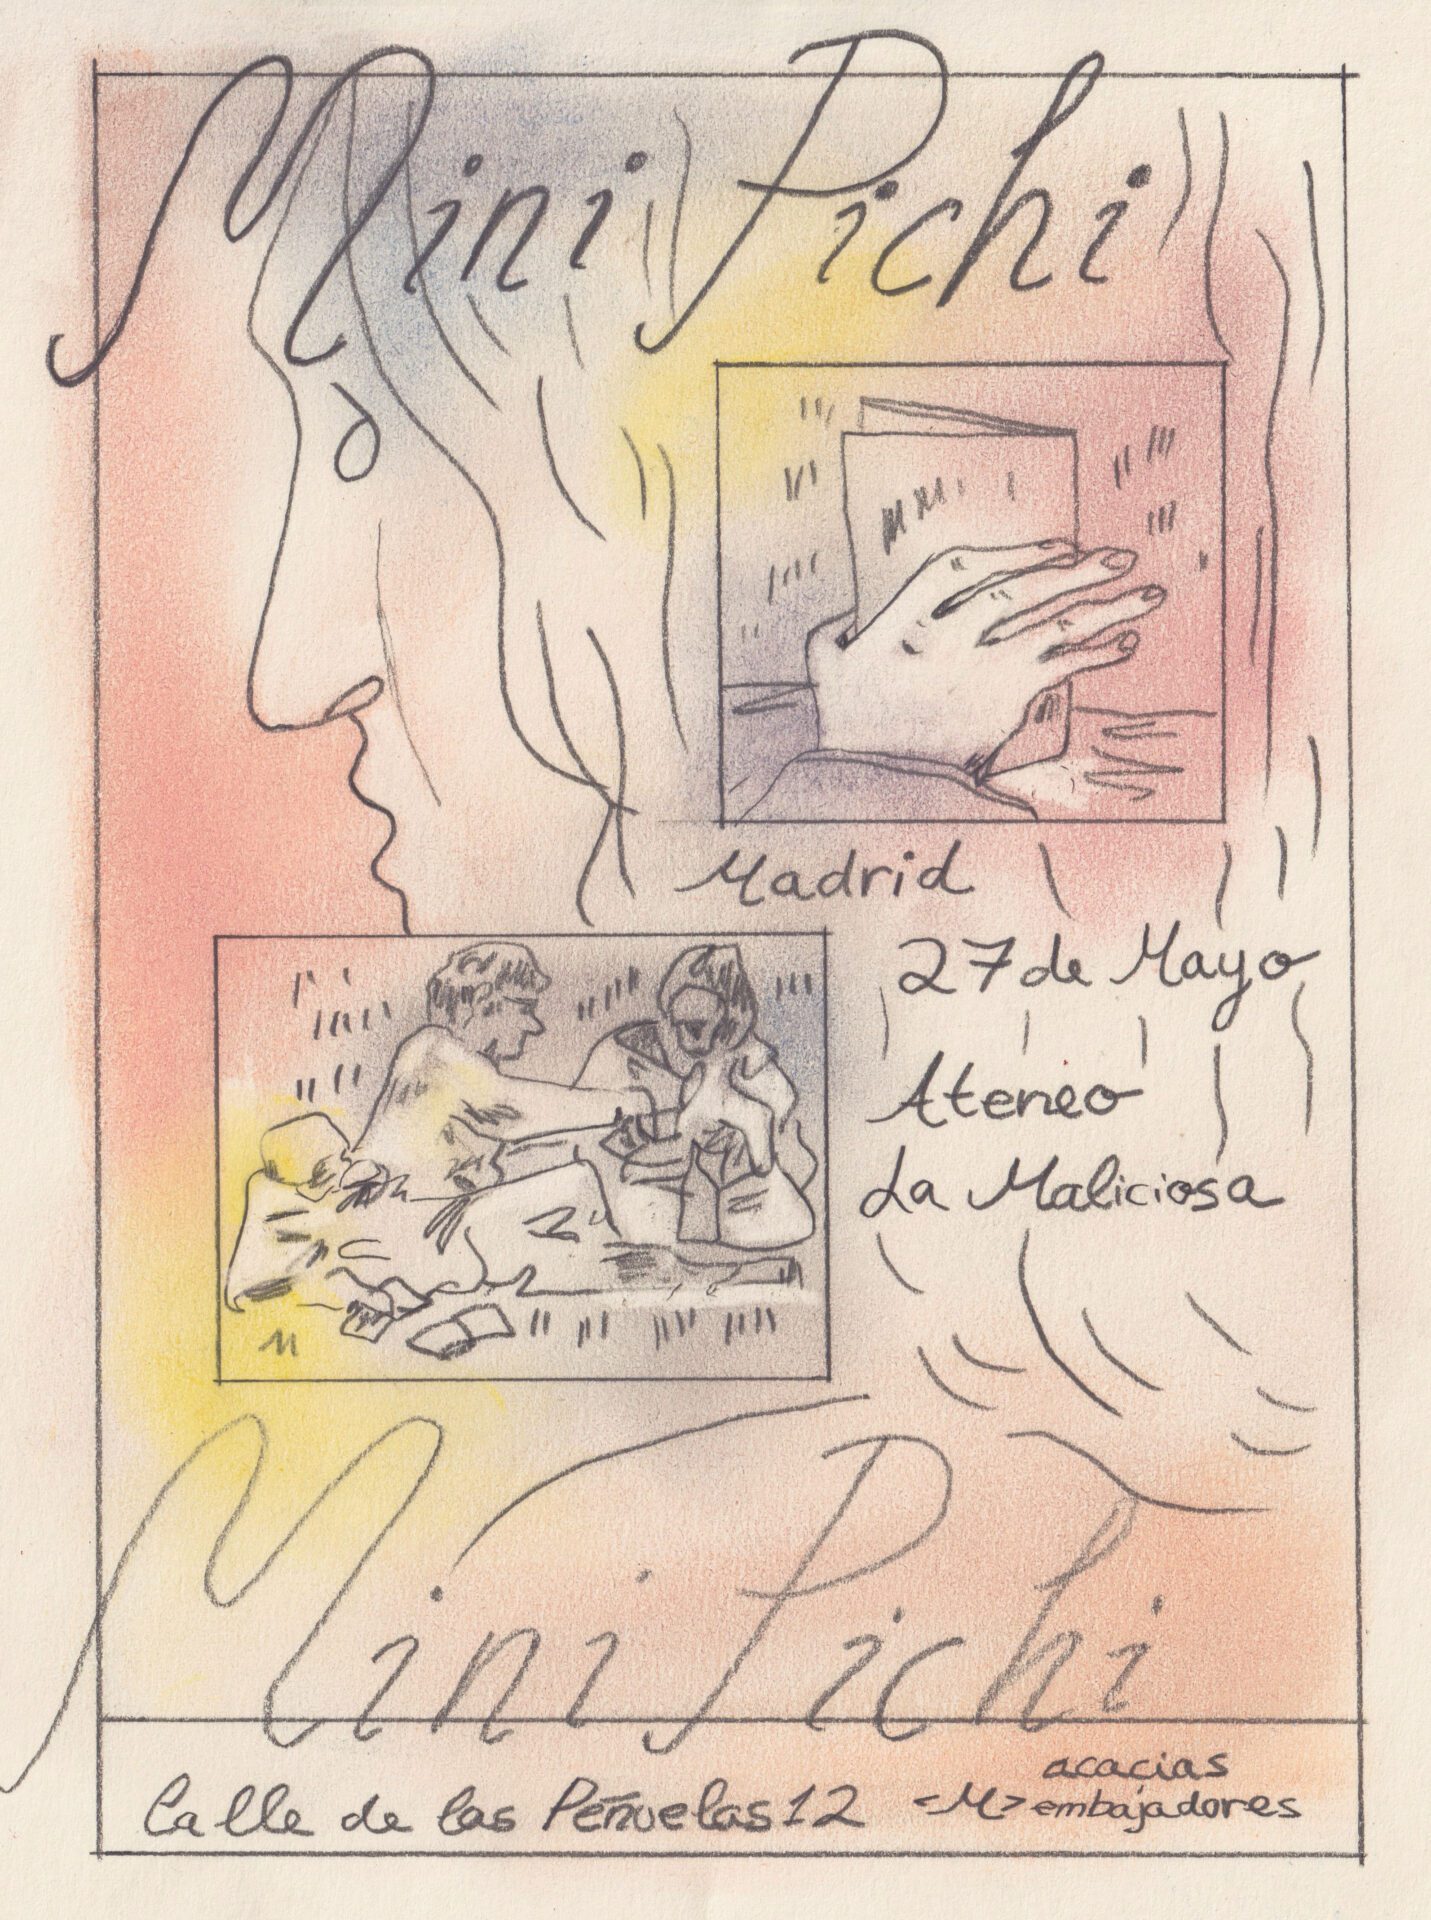 Mini Pichi
Madrid
27 de Mayo
Ateneo
La Maliciosa
Mini Pichi
Calle de las Peñuelas 12
<M> acacias
embajadores